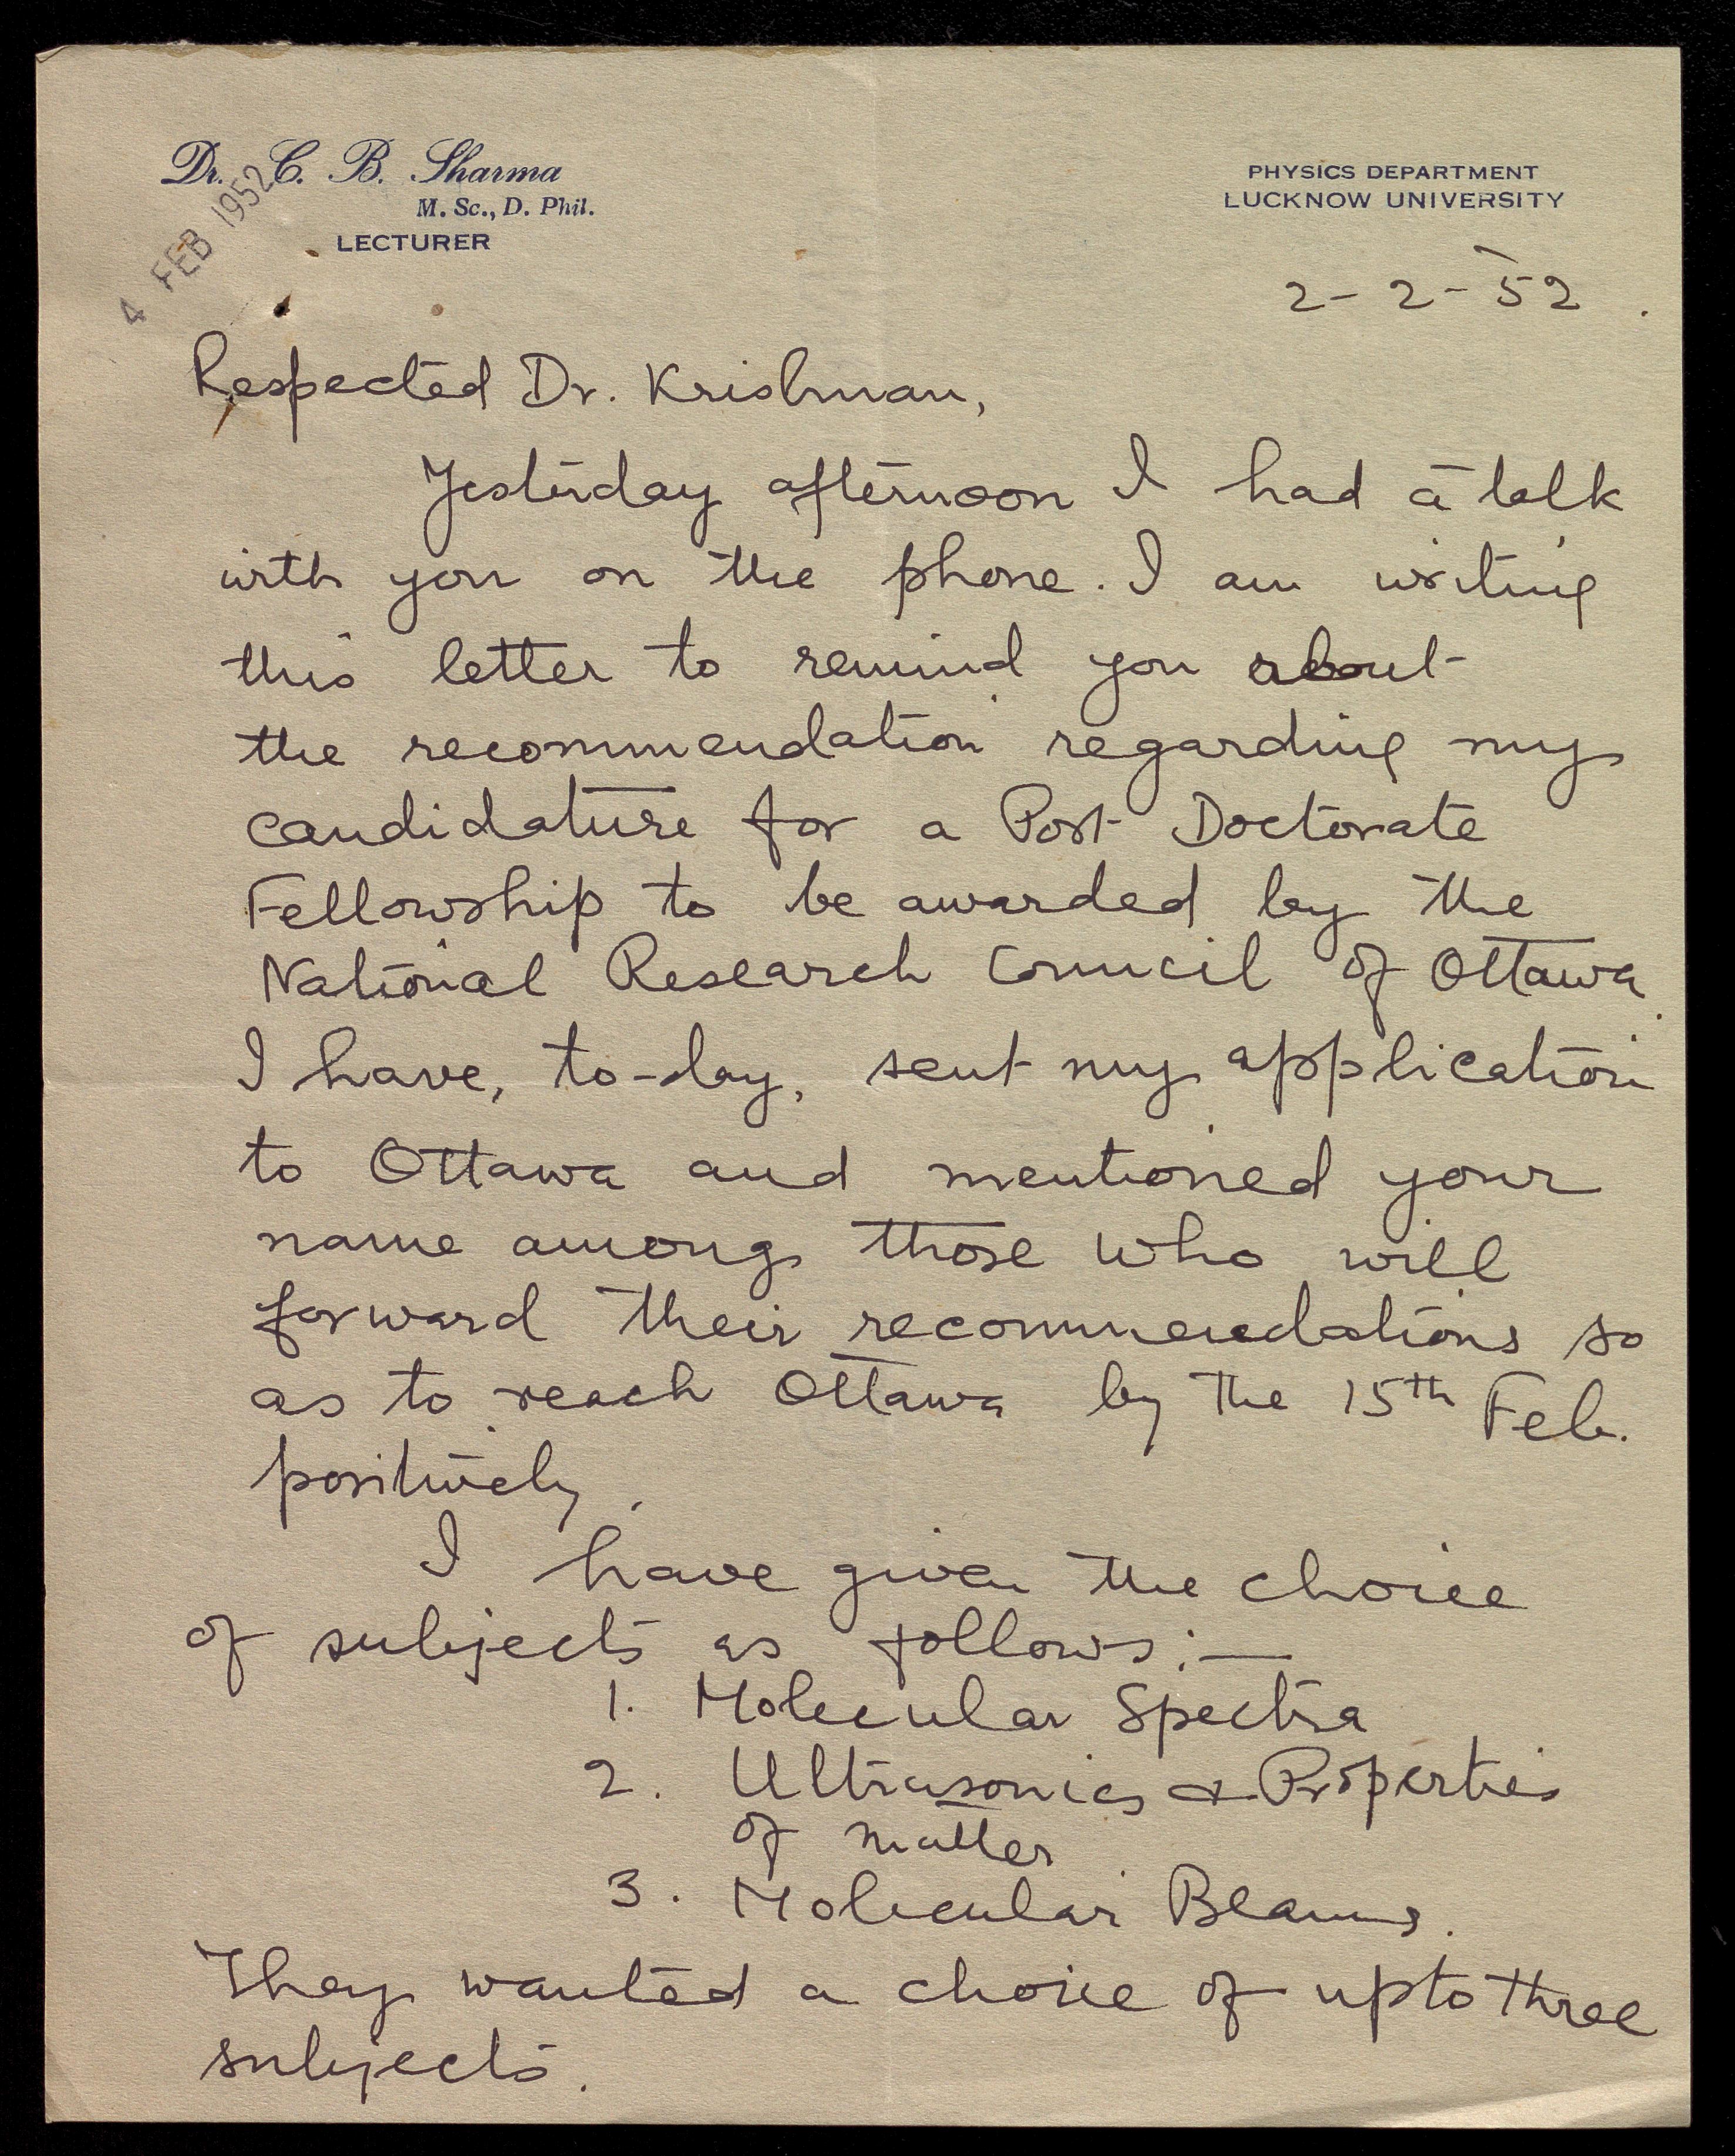 Dr. C. B. Sharma
M. Sc., D. Phil.
LECTURER
4 FEB 1952
PHYSICS DEPARTMENT
LUCKNOW UNIVERSITY
2-2-52
Respected Dr. Krishnan,
Yesterday afternoon I had a talk
with you on the phone. I am writing
this letter to remind you about
the recommendation regarding my
candidature for a Post Doctorate
Fellowship to be awarded by the
National Research Council of Ottawa.
I have, to-day, sent my application
to Ottawa and mentioned your
name among those who will
forward their recommendations so
as to reach Ottawa by the 15th Feb.
positively.
I have given the choice
of subjects as follows:—
1. Molecular Spectra
2. Ultrasonics & Properties
of matter
3. Molecular Beams.
They wanted a choice of upto three
subjects.